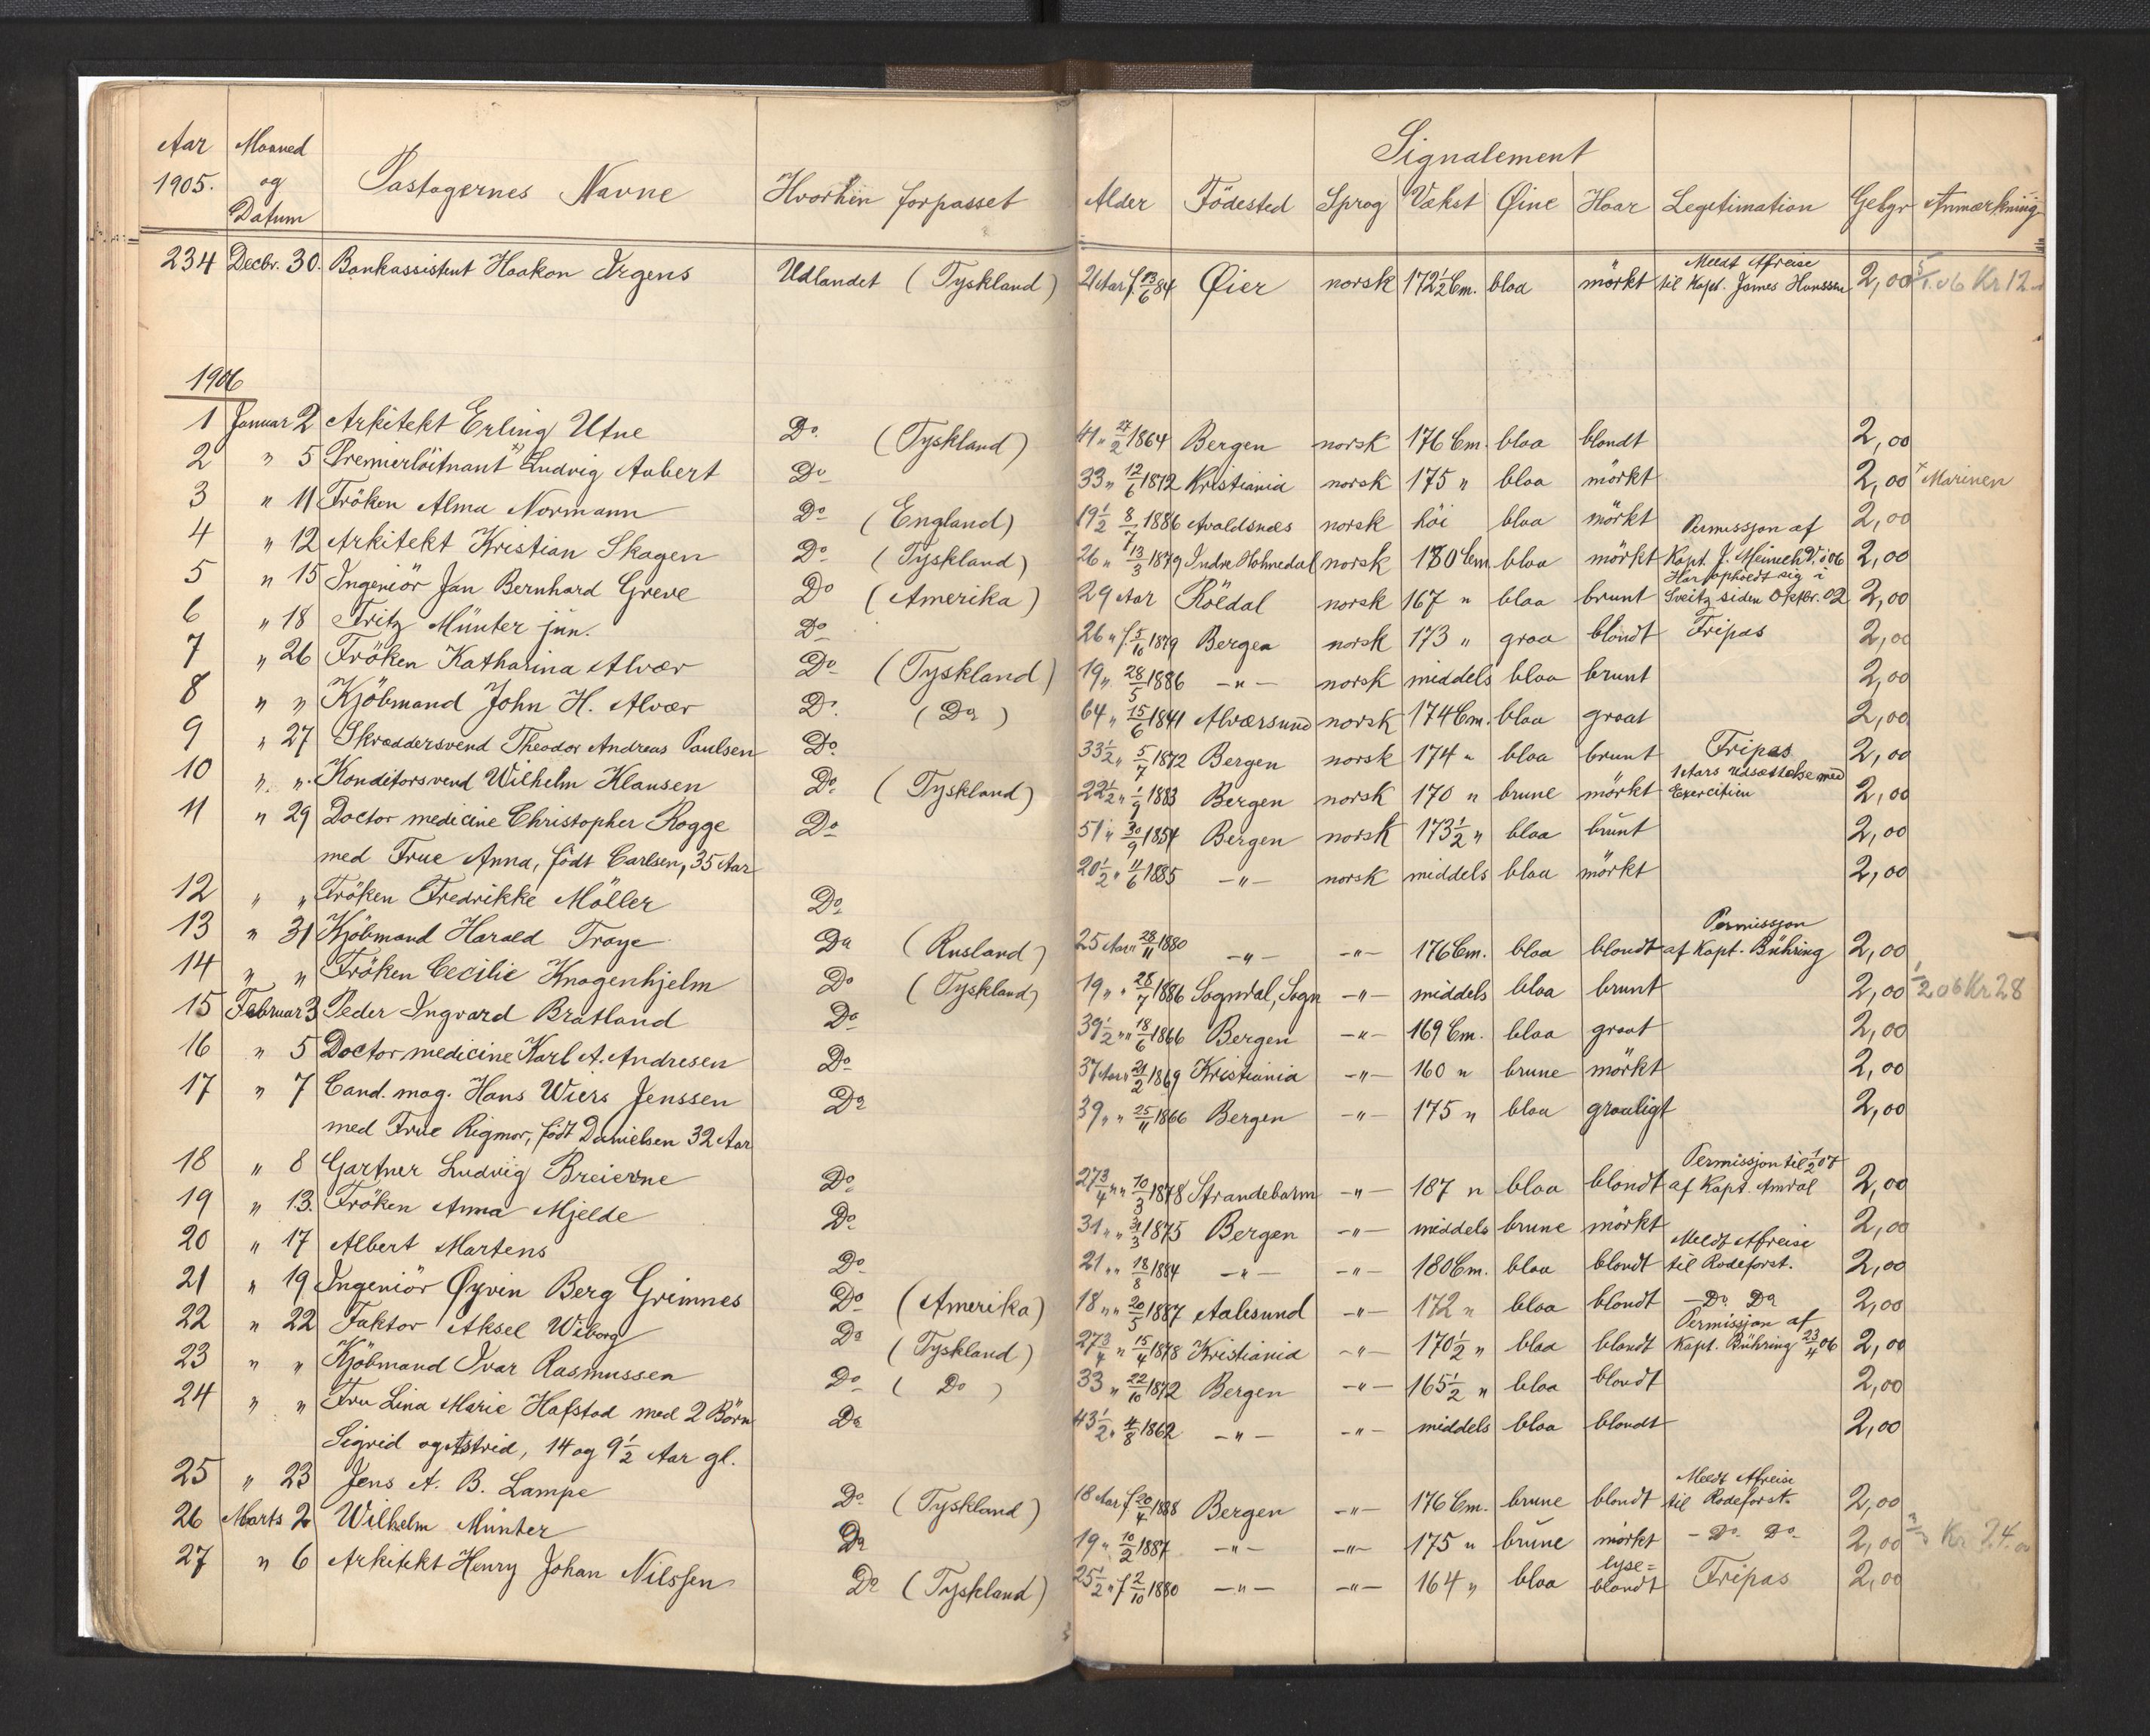 Aar 1905. Maaned og Datum Pastagernes Navne Hvorhen forpasset Signalement
Alder Födested Sprog Vækst Øine Haar Legitimation Gebyr Anmærkning
234 Decbr. 30. Bankassistent Haakon Irgens Udlandet (Tyskland) 21 Aar f. 13/6 84 Øier norsk 172 1/2 Cm. blaa mörkt Meldt Afreise til Kapt. James Hanssen 2,00 5/1.06 Kr 12
1906
1 Januar 2 Arkitekt Erling Utne Do. (Tyskland) 41 " 27/2 1864 Bergen norsk 176 Cm. blaa blondt 2,00
2 " 5 Premierlöitnant Ludvig Aubert Do 33 " 12/6 1872 Kristiania norsk 175 " blaa mörkt 2,00 Marinen
3 " 11 Fröken Alma Normann Do (England) 19 1/2 8/7 1886 Avaldsnæs norsk höi blaa mörkt 2,00
4 " 12 Arkitekt Kristian Skagen Do (Tyskland) 26 " 13/3 1879 Indre Holmedal norsk 180 Cm. blaa mörkt Permissjon af Kapt. J. Meinech 06 2,00
5 " 15 Ingeniör Jan Bernhard Greve Do (Amerika) 29 Aar Röldal norsk 167 " blaa brunt Har opholdt sig i Sveitz siden Oktbr. 02 2,00
6 " 18 Fritz Münter jun. Do 26 " f. 5/10 1879 Bergen norsk 173 " graa blondt Fripas 2,00
7 " 26 Fröken Katharina Alvær Do (Tyskland) 19 " 28/5 1886 - " - norsk middels blaa brunt 2,00
8 " " Kjöbmand John H. Alvær Do. (Do) 64 " 15/6 1841 Alværsund norsk 174 Cm. blaa graat 2,00
9 " 27 Skræddersvend Theodor Andreas Paulsen Do. 33 1/2 " 5/7 1872 Bergen norsk 174 " blaa brunt Fripas 2,00
10 " " Konditorsvend Wilhelm Klausen Do (Tyskland) 22 1/2 " 1/9 1883 Bergen norsk 170 " brune mörkt 1 Aars Udsættelse med Exercitien 2,00
11 " 29 Doctor medicine Christopher Rogge Do 51 " 30/9 1854 Bergen norsk 173 1/2 " blaa brunt 2,00
med Frue Anna, födt Carlsen, 35 Aar
12 " " Fröken Fredrikke Möller Do 20 1/2 " 11/6 1885 - " - norsk middels blaa mörkt 2,00
13 " 31 Kjöbmand Harald Troye Do (Rusland) 25 Aar " 28/11 1880 - " - - " - 176 Cm. blaa blondt Permissjon af Kapt. Bühring 2,00
14 " " Fröken Cecilie Knagenhjelm Do (Tyskland) 19 " " 28/7 1886 Sogndal, Sogn - " - middels blaa brunt 2,00 1/2 06 Kr 28
15 Februar 3 Peder Ingvard Bratland Do 39 1/2 " " 18/6 1866 Bergen - " - 169 Cm. blaa graat 2,00
16 " 5 Doctor medicine Karl A. Andresen Do 37 Aar " 21/2 1869 Kristiania - " - 160 " brune mörkt 2,00
17 " 7 Cand. mag. Hans Wiers Jenssen Do 39 " " 25/11 1866 Bergen - " - 175 " blaa graaligt 2,00
med Frue Rigmor, födt Danielsen 32 Aar
18 " 8 Gartner Ludvig Breierne Do 27 3/4 " " 10/3 1878 Strandebarm - " - 187 " blaa blondt Permissjon til 1/2 07 af Kapt. Amdal 2,00
19 " 13. Fröken Anna Mjelde Do 31 " " 31/3 1875 Bergen - " - middels brune mörkt 2,00
20 " 17 Albert Martens Do 21 " " 18/8 1884 - " - - " - 180 Cm. blaa blondt Meldt Afreise til Rodeforst. 2,00
21 " 19 Ingeniör Øyvin Berg Grimnes Do (Amerika) 18 " " 20/5 1887 Aalesund - " - 172 " blaa blondt - Do Do 2,00
22 " 22 Faktor Aksel Wiborg Do (Tyskland) 27 3/4 " 15/4 1878 Kristiania - " - 170 1/2 " blaa blondt Permissjon af Kapt. Bühring 23/4 06 2,00
23 " " Kjöbmand Ivar Rasmussen Do (Do) 33 " 22/10 1872 Bergen - " - 165 1/2 " blaa blondt 2,00
24 " " Fru Lina Marie Hafstad med 2 Börn Do 43 1/2 " 4/8 1862 - " - - " - middels blaa blondt 2,00
Sigrid og Astrid, 14 og 9 1/2 Aar gl.
25 " 23 Jens A. B. Lampe Do (Tyskland) 18 Aar f 20/4 1888 Bergen - " - 176 Cm. brune blondt Meldt Afreise til Rodeforst. 2,00
26 Marts 2 Wilhelm Münter Do 19 " 10/2 1887 - " - - " - 175 " brune mörkt - Do. Do. 2,00 Kr
27 " 6 Arkitekt Henry Johan Nilssen Do (Tyskland) 25 1/2 " f 2/10 1880 - " - - " - 164 " blaa lyse= blondt Fripas 2,00